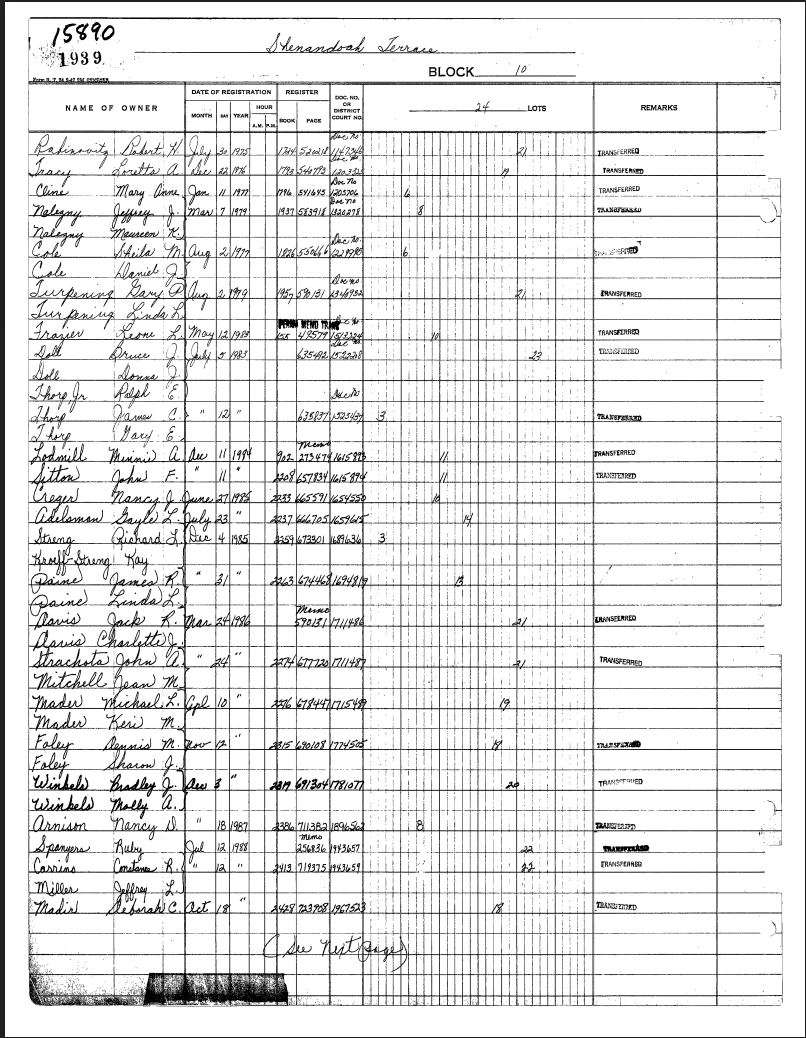 15890
1939
Shenandoah Terrace
BLOCK 10
NAME OF OWNER DATE OF REGISTRATION REGISTER DOC. NO. OR DISTRICT COURT NO. 24 LOTS REMARKS
MONTH DAY YEAR HOUR A.M. P.M. BOOK PAGE
Doc No
Rabinovitz Robert H. July 30 1975 1744 520218 1147346 21 TRANSFERRED
Doc No
Tracy Loretta A. Dec 22 1976 1793 540773 1203525 19 TRANSFERRED
Doc No
Cline Mary Anne Jan 11 1977 1796 541645 1205706 6 TRANSFERRED
Doc No
Nalezny Jeffrey J. Mar 7 1979 1937 583918 1320278 8 TRANSFERRED
Nalezny Maureen K.
Doc No
Cole Sheila M. Aug 2 1977 1826 6 TRANSFERRED
Cole Daniel J.
Doc No
Turpening Gary P. Aug 2 1979 1957 590131 1340932 21 TRANSFERRED
Turpening Linda L.
MEMO
Frazier Leone L. May 12 1983 49579 1513224 10 TRANSFERRED
Doc No
Doll Bruce J. July 5 1983 635482 1522228 23 TRANSFERRED
Doll Donna J.
Thorp, Jr. Ralph E. Doc No
Thorp James C. " 12 " 635837 1523437 3 TRANSFERRED
Thorp Gary E.
Memo
Lodmill Minnie A. Dec 11 1984 902 273474 1615893 11 TRANSFERRED
Sitton John F. " 11 " 2208 657834 1615894 11 TRANSFERRED
Creger Nancy J. June 27 1985 2233 665591 1654550 10
Adelsman Gayle L. July 23 " 2237 666705 1659615 14
Streng Richard L. Dec 4 1985 2259 673301 1689636 3
Kroeff-Streng Kay
Paine James R. " 31 " 2263 674468 1694819 13
Paine Linda L.
Memo
Davis Jack R. Mar 24 1986 590131 1711486 21 TRANSFERRED
Davis Charlette J.
Strachota John A. " 24 " 2274 677720 1711487 21 TRANSFERRED
Mitchell Jean M.
Mader Michael L. Apl 10 " 2276 678447 1715489 19
Mader Keri M.
Foley Dennis M. Nov 12 " 2315 690108 1774505 18 TRANSFERRED
Foley Sharon J.
Winkels Bradley J. Dec 3 " 2319 691304 1781077 20 TRANSFERRED
Winkels Molly A.
Arnison Nancy D. " 18 1987 2386 711382 1896562 8 TRANSFERRED
Memo
Spanyers Ruby Jul 12 1988 256836 1943657 22 TRANSFERRED
Carrino Constance R. " 12 " 2413 719375 1943659 22 TRANSFERRED
Miller Jeffrey L.
Madir Deborah C. Oct 18 " 2428 723908 1967523 18 TRANSFERRED
(See Next page)